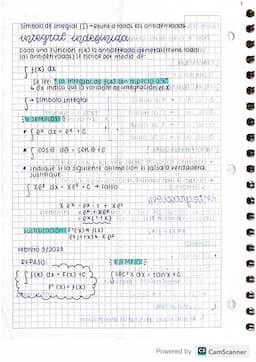 símbolo de integral (∫) → reune a todas las antiderivadas
integral indefinida
Dada una función f(x) la antiderivada general (reune todas
las antiderivadas) se escribe por medio de:
∫ f(x) dx
Se lee: "La integral de f(x) con respecto a x"
↳ dx indica que la variable de integración es x
∫ → símbolo integral
EJEMPLOS
• ∫ eˣ dx = eˣ + C
• ∫ cos θ dθ = sen θ + C
• Indique si la siguiente afirmación es falsa o verdadera.
Justifique
∫ xeˣ dx = xeˣ + C → Falso
F'(x) ≠ f(x)
febrero 3/2023
REPASO:
EJEMPLO
∫ f(x) dx = F(x) + C
∫ sec²x dx = tan x + C
F'(x) = f(x)
Powered by CS CamScanner